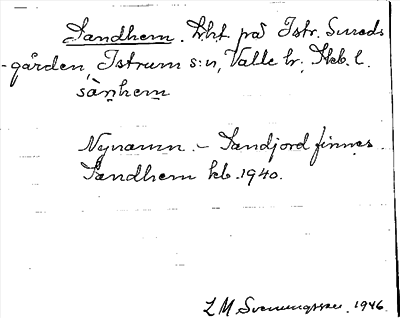 Sandhem. Lht på Istr. Smeds
-gården Istrum s:n, Valle hr; Skb. l.
sànhem
Nynamn. - Sandjord finnes.
Sandhem kb. 1940.
L M Svenungsson. 1946.